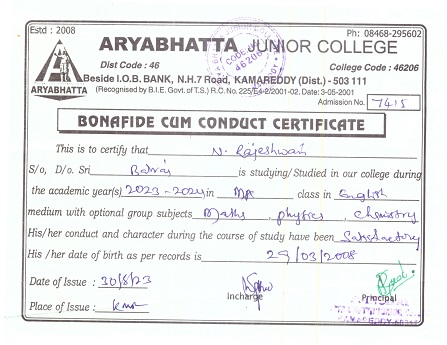 Estd : 2008
Ph: 08468-295602
ARYABHATTA JUNIOR COLLEGE
Dist Code : 46
College Code : 46206
Beside I.O.B. BANK, N.H.7 Road, KAMAREDDY (Dist.) - 503 111
ARYABHATTA
(Recognised by B.I.E. Govt. of T.S.) R.C. No. 225/E4-2/2001-02. Date: 3-05-2001
Admission No. 7415
BONAFIDE CUM CONDUCT CERTIFICATE
This is to certify that N. Rajeshwari
S/o, D/o. Sri Balraj is studying/Studied in our college during
the academic year(s) 2023-2024 in class in English
medium with optional group subjects Maths, physics, chemistry
His/her conduct and character during the course of study have been Satisfactory
His /her date of birth as per records is 29/03/2008
Date of Issue : 30/8/23
Incharge
Principal
Place of Issue : KMR